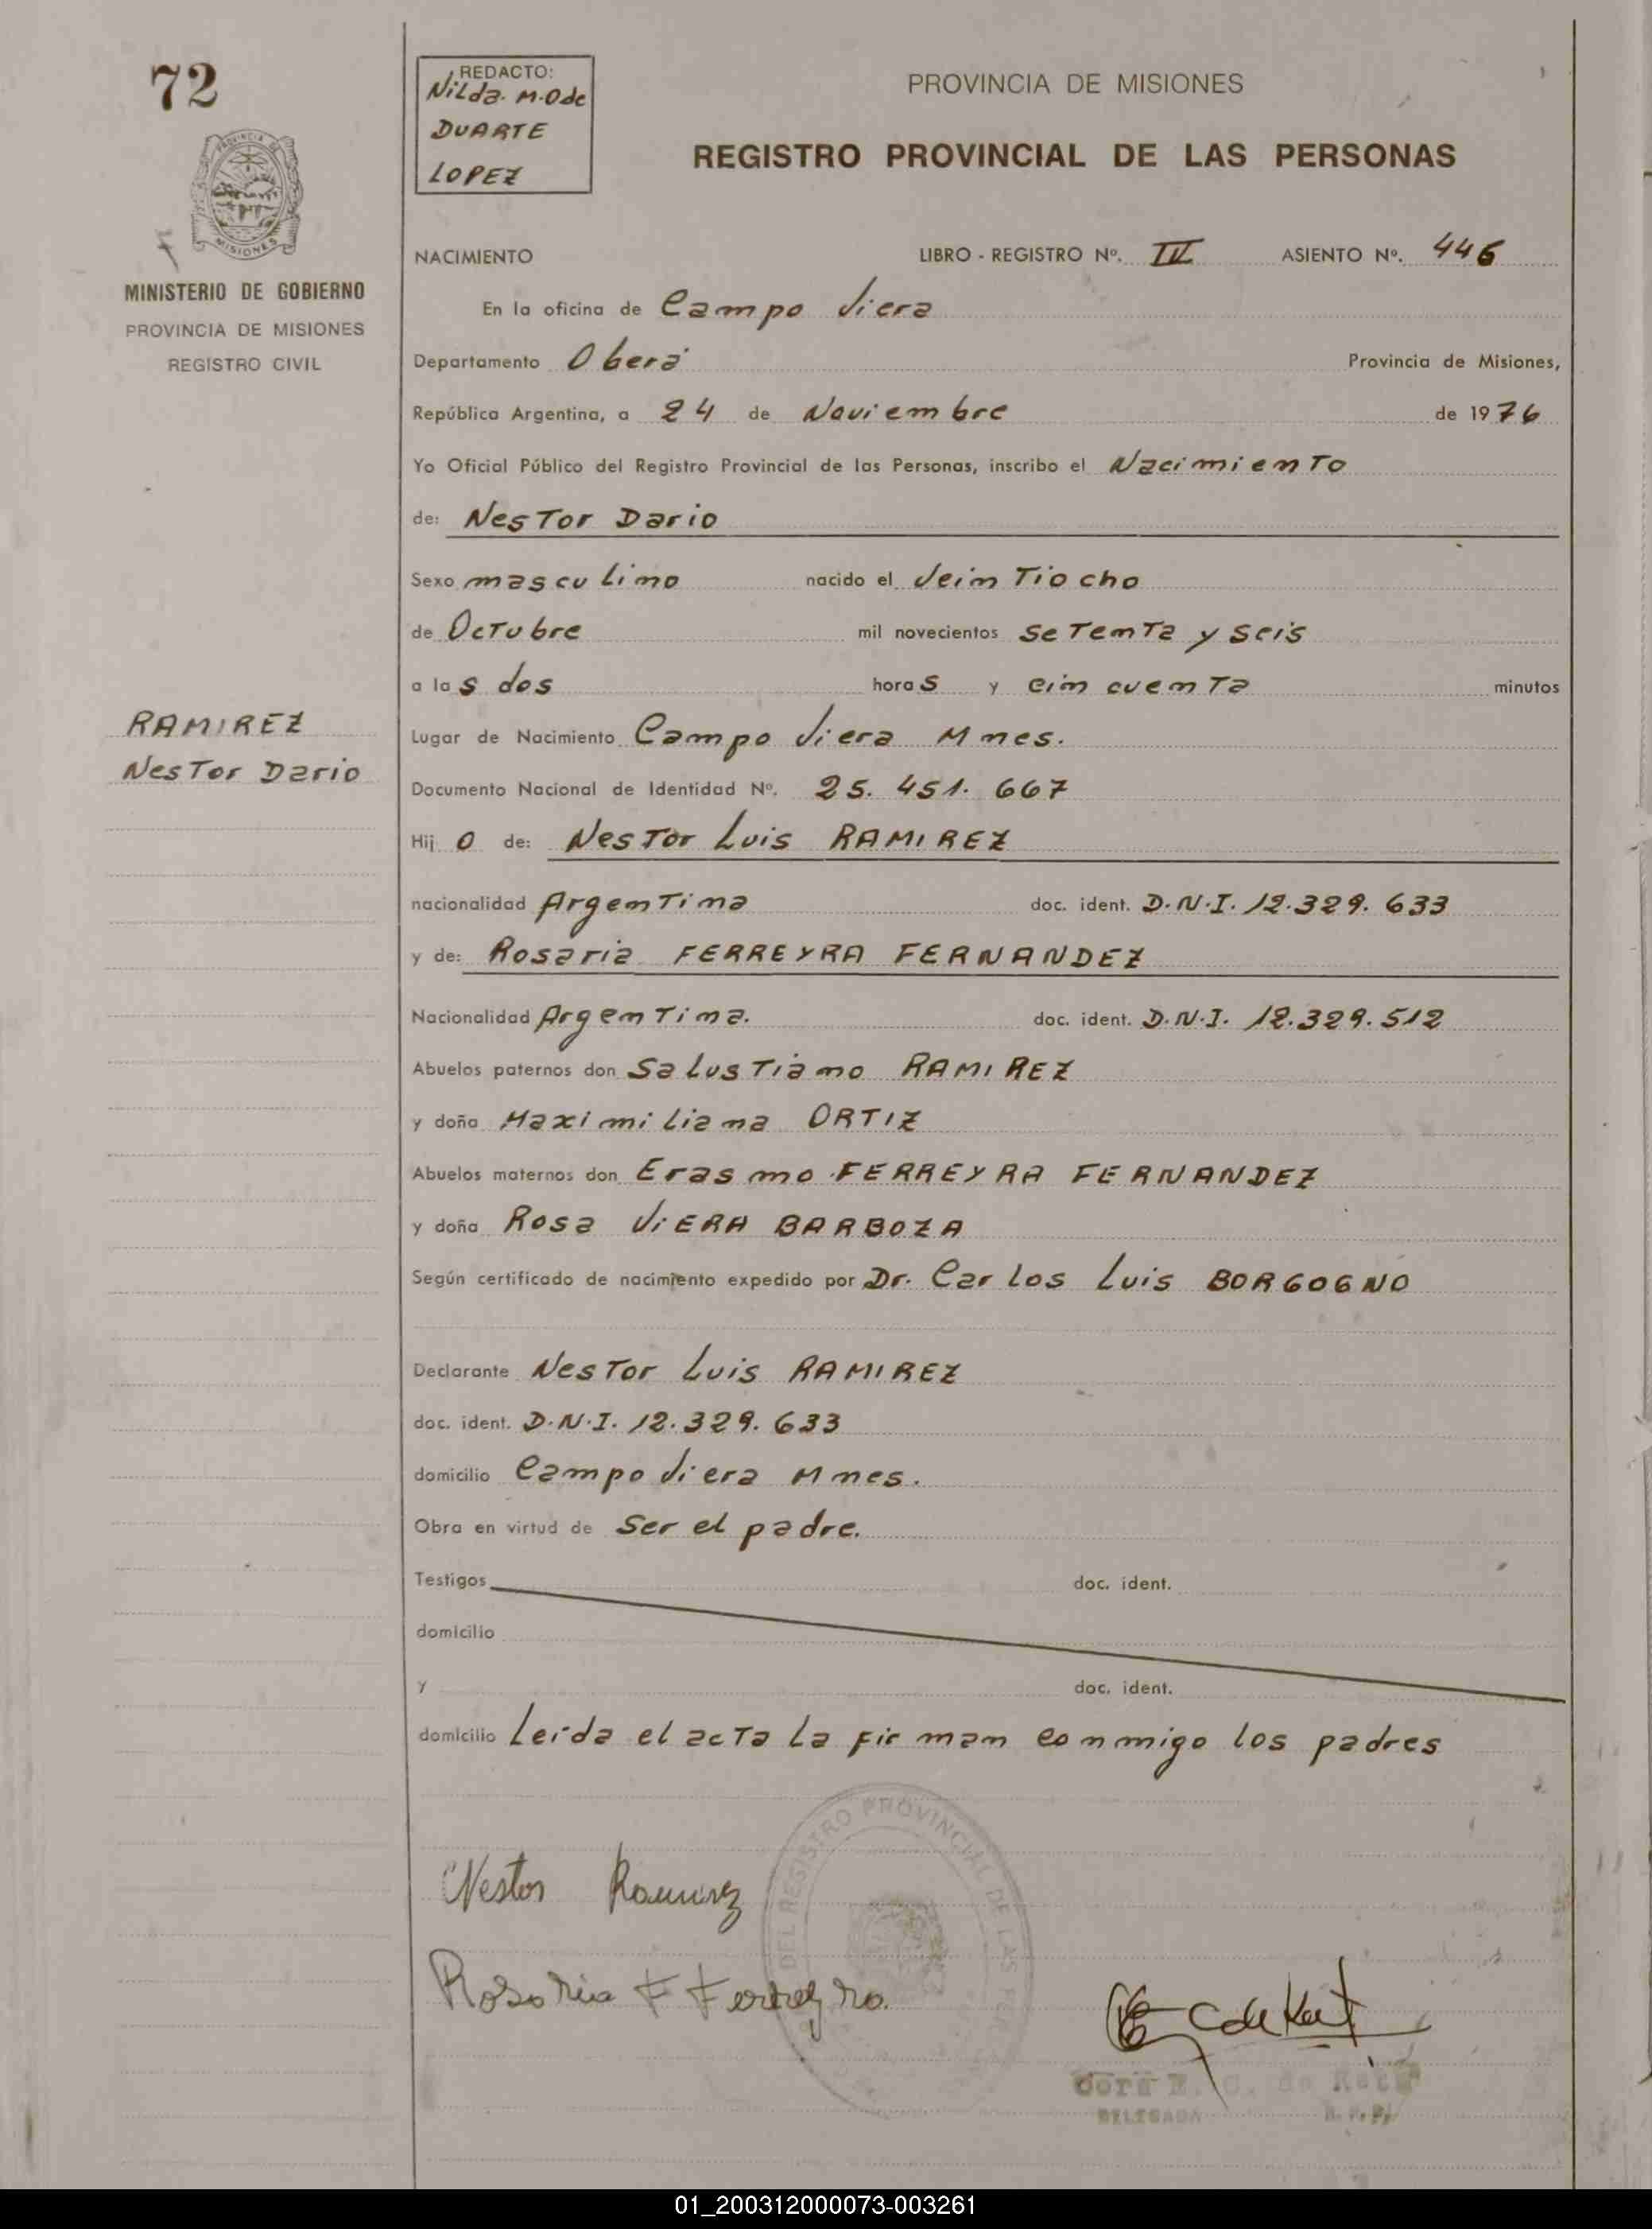 72
REDACTO:
Nilda. M. O de
DUARTE
LOPEZ
PROVINCIA DE MISIONES
REGISTRO PROVINCIAL DE LAS PERSONAS
MISIONES
MINISTERIO DE GOBIERNO
PROVINCIA DE MISIONES
REGISTRO CIVIL
NACIMIENTO LIBRO - REGISTRO Nº. IV ASIENTO Nº. 446
En la oficina de Campo Viera
Departamento Oberá Provincia de Misiones,
República Argentina, a 24 de Noviembre de 1976
Yo Oficial Público del Registro Provincial de las Personas, inscribo el Nacimiento
de: Nestor Dario
Sexo masculino nacido el Veintiocho
de Octubre mil novecientos setenta y seis
a las dos horas y cincuenta minutos
RAMIREZ
Nestor Dario
Lugar de Nacimiento Campo Viera Mnes.
Documento Nacional de Identidad Nº. 25.451.667
Hijo de: Nestor Luis RAMIREZ
nacionalidad Argentina doc. ident. D.N.I. 12.329.633
y de: Rosaria FERREYRA FERNANDEZ
Nacionalidad Argentina. doc. ident. D.N.I. 12.329.512
Abuelos paternos don Salustiano RAMIREZ
y doña Maximiliana ORTIZ
Abuelos maternos don Erasmo FERREYRA FERNANDEZ
y doña Rosa ViERA BARBOZA
Según certificado de nacimiento expedido por Dr. Carlos Luis BORGOGNO
Declarante Nestor Luis RAMIREZ
doc. ident. D.N.I. 12.329.633
domicilio Campo Viera Mnes.
Obra en virtud de Ser el padre.
Testigos doc. ident.
domicilio
y doc. ident.
domicilio Leída el acta la firman conmigo los padres
DEL REGISTRO PROVINCIAL DE LAS
Nestor Ramirez
Rosaria F Ferreyra.
Cora E. C. de
DELEGADA
01_200312000073-003261